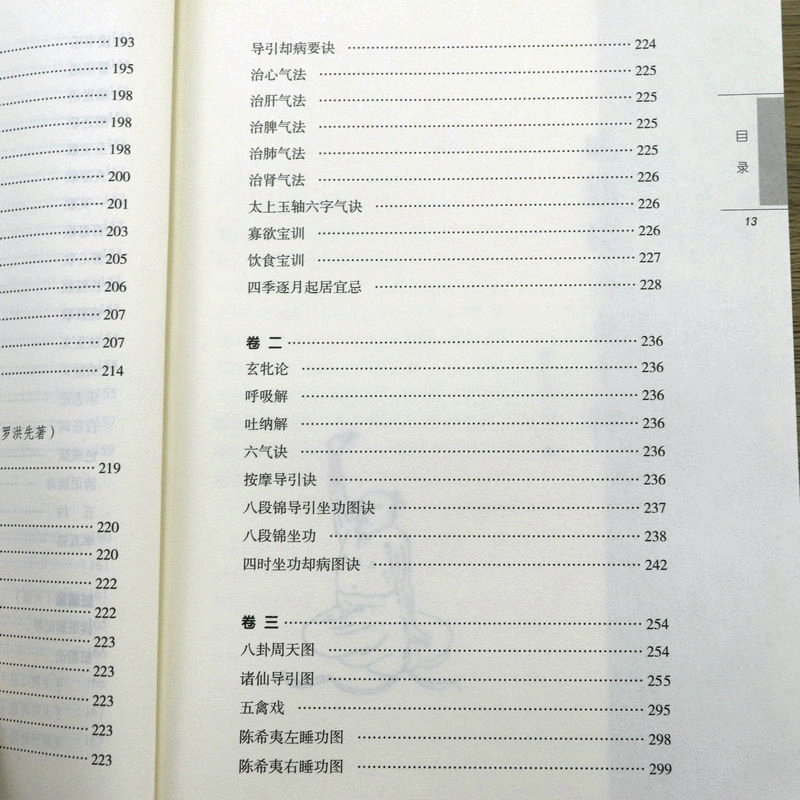 193
195
198
198
198
200
201
203
205
206
207
207
214
罗洪先著）
219
220
220
222
222
223
223
223
223
223
导引却病要诀 224
治心气法 225
治肝气法 225
治脾气法 225
治肺气法 225
治肾气法 226
太上玉轴六字气诀 226
寡欲宝训 226
饮食宝训 227
四季逐月起居宜忌 228
卷 二 236
玄牝论 236
呼吸解 236
吐纳解 236
六气诀 236
按摩导引诀 236
八段锦导引坐功图诀 237
八段锦坐功 238
四时坐功却病图诀 242
卷 三 254
八卦周天图 254
诸仙导引图 255
五禽戏 295
陈希夷左睡功图 298
陈希夷右睡功图 299
目
录
13